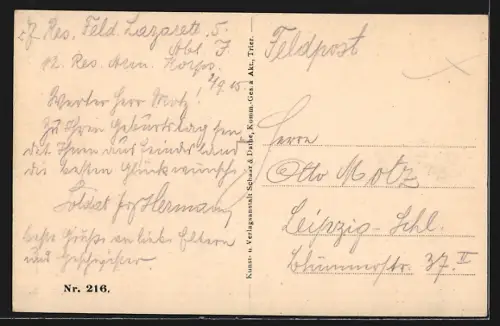 Res. Feld. Lazarett. 5.
Abt. I
12. Res. Arm. Korps.
2/9 15
Werter Herr Motz!
Zu Ihren Geburtstag sen,
det Ihnen aus Feindesland
die besten Glückwünsche
Soldat Hermann
beste Grüße an liebe Eltern
und Geschwister
Nr. 216.
Kunst- u. Verlagsanstalt Schaar & Dathe, Komm.-Ges. a Akt., Trier.
Feldpost
Herrn
Otto Motz
Leipzig-Schl.
Blümnerstr. 37. II